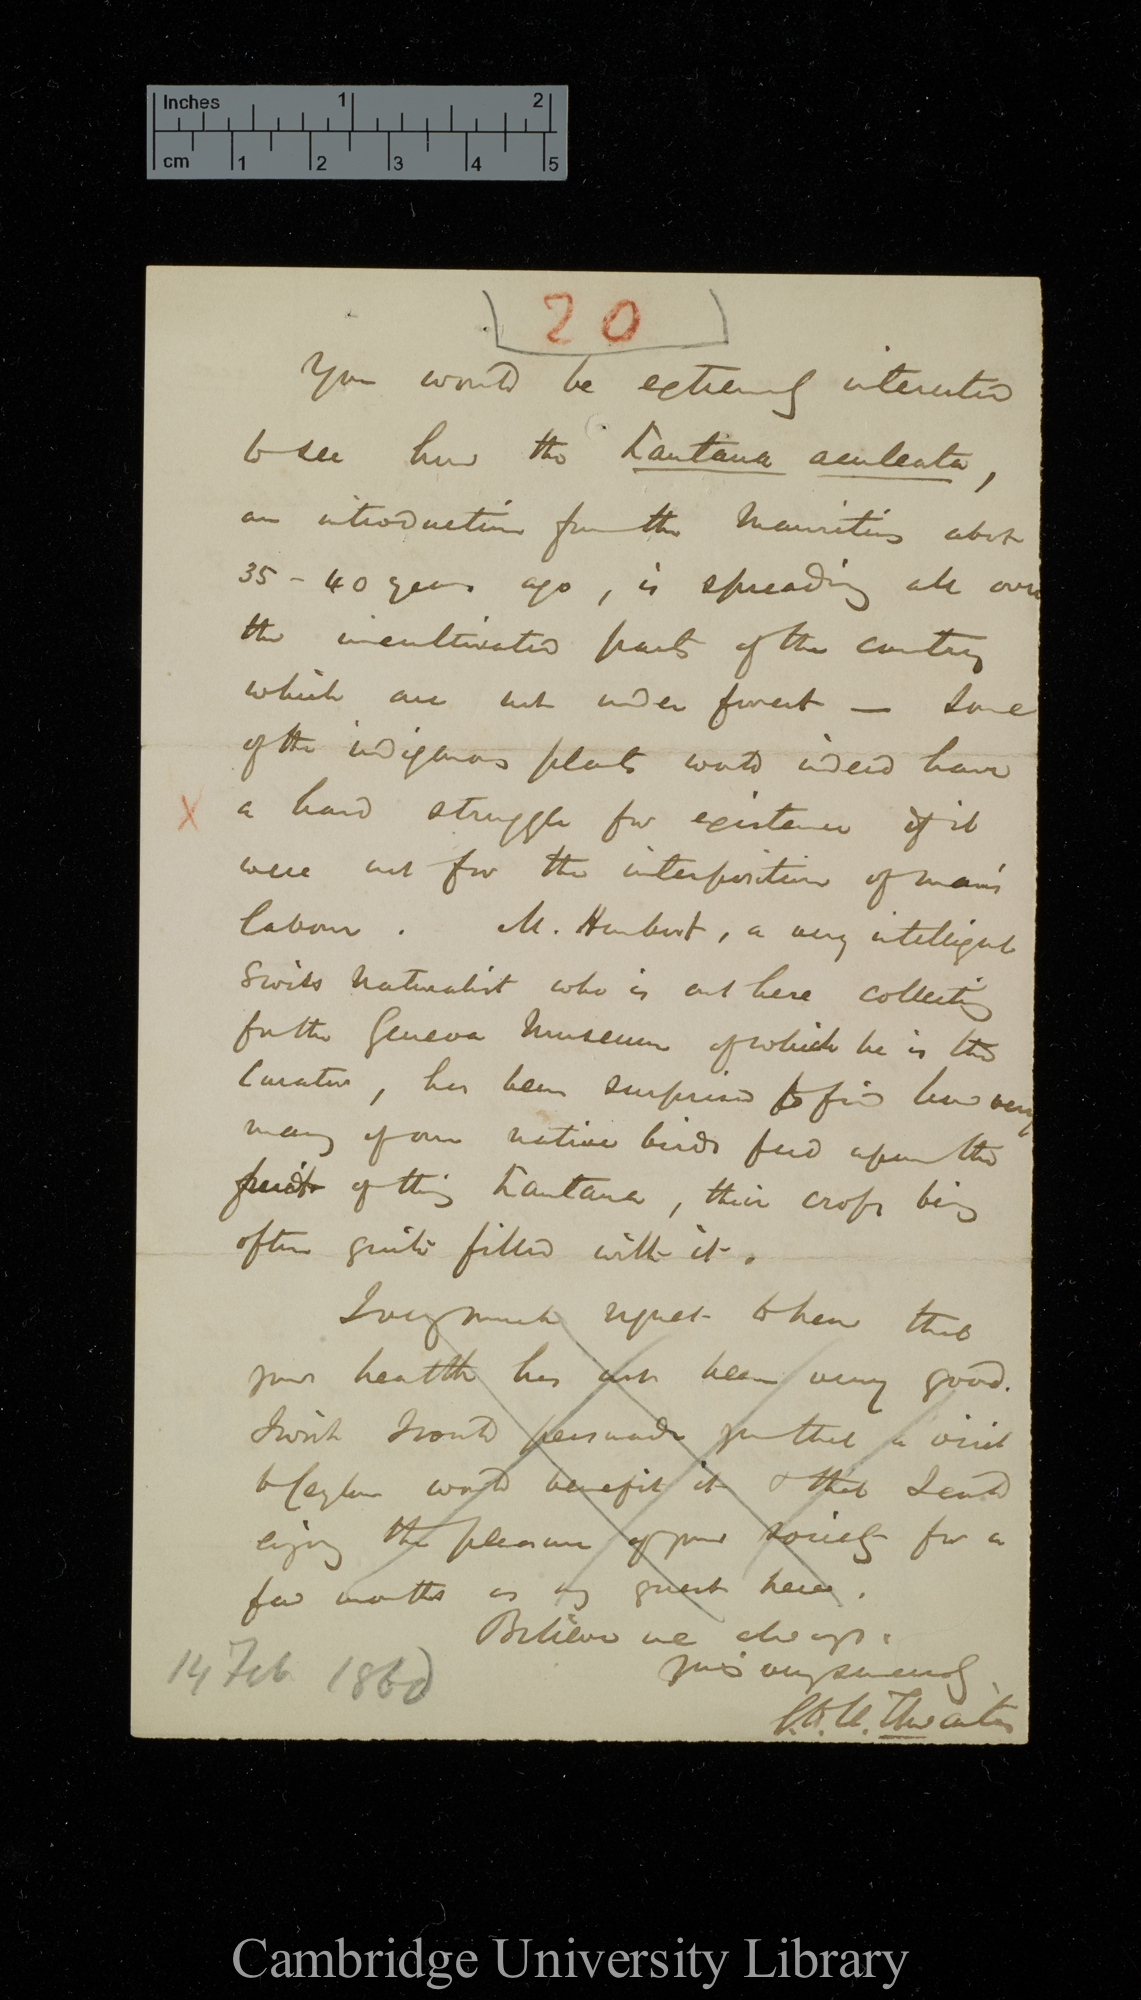 Inches 1 2
cm 1 2 3 4 5
20
You would be extremely interested
to see how the Lantana aculeata,
an introduction from the Mauritius about
35-40 years ago, is spreading all over
the uncultivated parts of the country
which are not under forest — Some
of the indigenous plants would indeed have
X a hard struggle for existence if it
were not for the interposition of man's
labour. M. Humbert, a very intelligent
Swiss Naturalist who is out here collecting
for the Geneva Museum of which he is the
Curator, has been surprised to find how very
many of our native birds feed upon the
fruit of this Lantana, their crops being
often quite filled with it.
I very much regret to hear that
your health has not been very good.
I wish I could persuade you that a visit
to Ceylon would benefit it & that I could
enjoy the pleasure of your society for a
few months as my guest here.
Believe me always
yours very sincerely
G.H.K. Thwaites
14 Feb 1860
Cambridge University Library